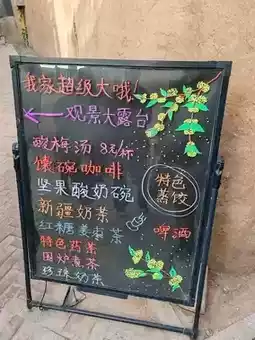 我家超级大哦!
← 观景大露台
酸梅汤 8元/杯
馕碗咖啡
坚果酸奶碗
特色
新疆奶茶
红糖姜枣茶
啤酒
特色药茶
围炉煮茶
珍珠奶茶